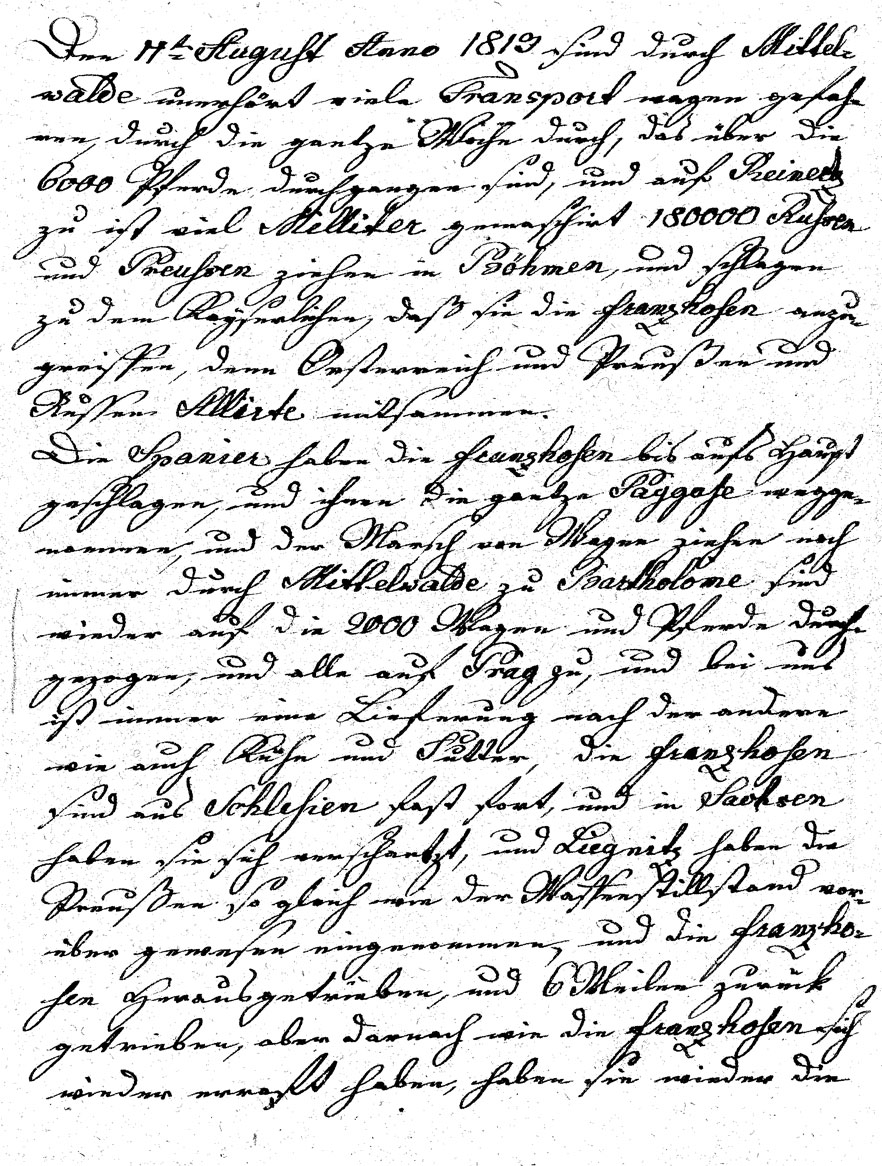 Den 11t August Anno 1813 sind durch Mittel=
walde unerhört viele Transport wagen gefah=
ren, durch die gantze Woche durch, das über die
6000 Pferde durchgangen sind, und auf Reinertz
zu ist viel Milliter gemaschirt 180000 Rußsen
und Preußsen ziehen in Böhmen, und schlagen
zu dem Kayserlichen, daß sie die franzhosen anzu=
greiffen, denn Oesterreich und Preußen und
Russen Allirte mitsammen.
Die Spanier haben die franzhosen bis aufs Haupt
geschlagen, und ihnen die gantze Paggase wegge=
nommen, und der Marsch von Wagen ziehen noch
immer durch Mittelwalde zu Bartholome sind
wieder auf die 2000 Wagen und Pferde durch=
gezogen, und alle auf Prag zu, und bei uns
ist immer eine Lieferung nach der andern
wie auch Kühe und Futter, die franzhosen
sind aus Schlesien fast fort, und in Sachsen
haben sie sich verschantzt, und Liegnitz haben die
Preußen so gleich wie der Waffenstillstand vor=
über gewesen eingenommen, und die franzho=
sen Herausgetrieben, und 6 Meilen zurück
getrieben, aber darnach wie die franzhosen sich
wieder errafft haben, haben sie wieder die